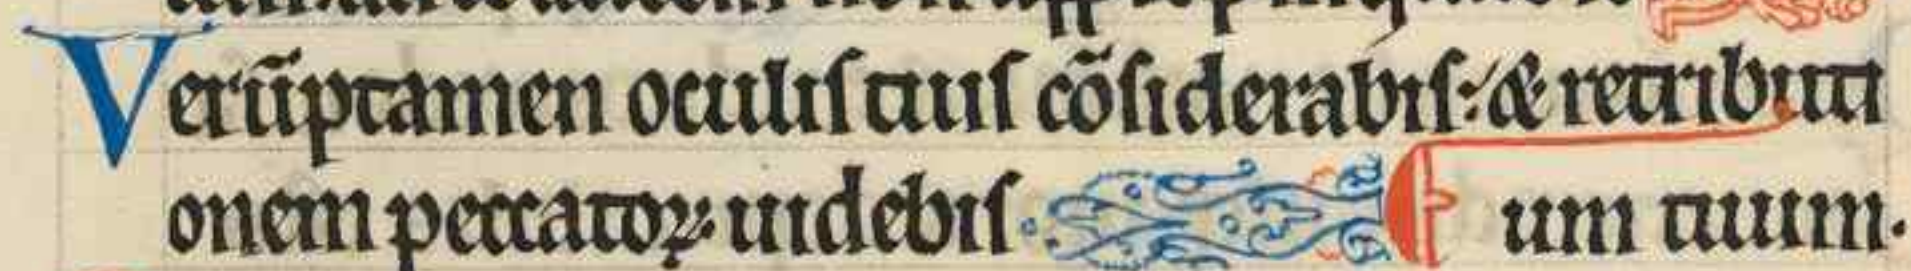 Verūptamen oculis tuis cōsiderabis: & retributi
onem peccatoꝝ uidebis um tuum.